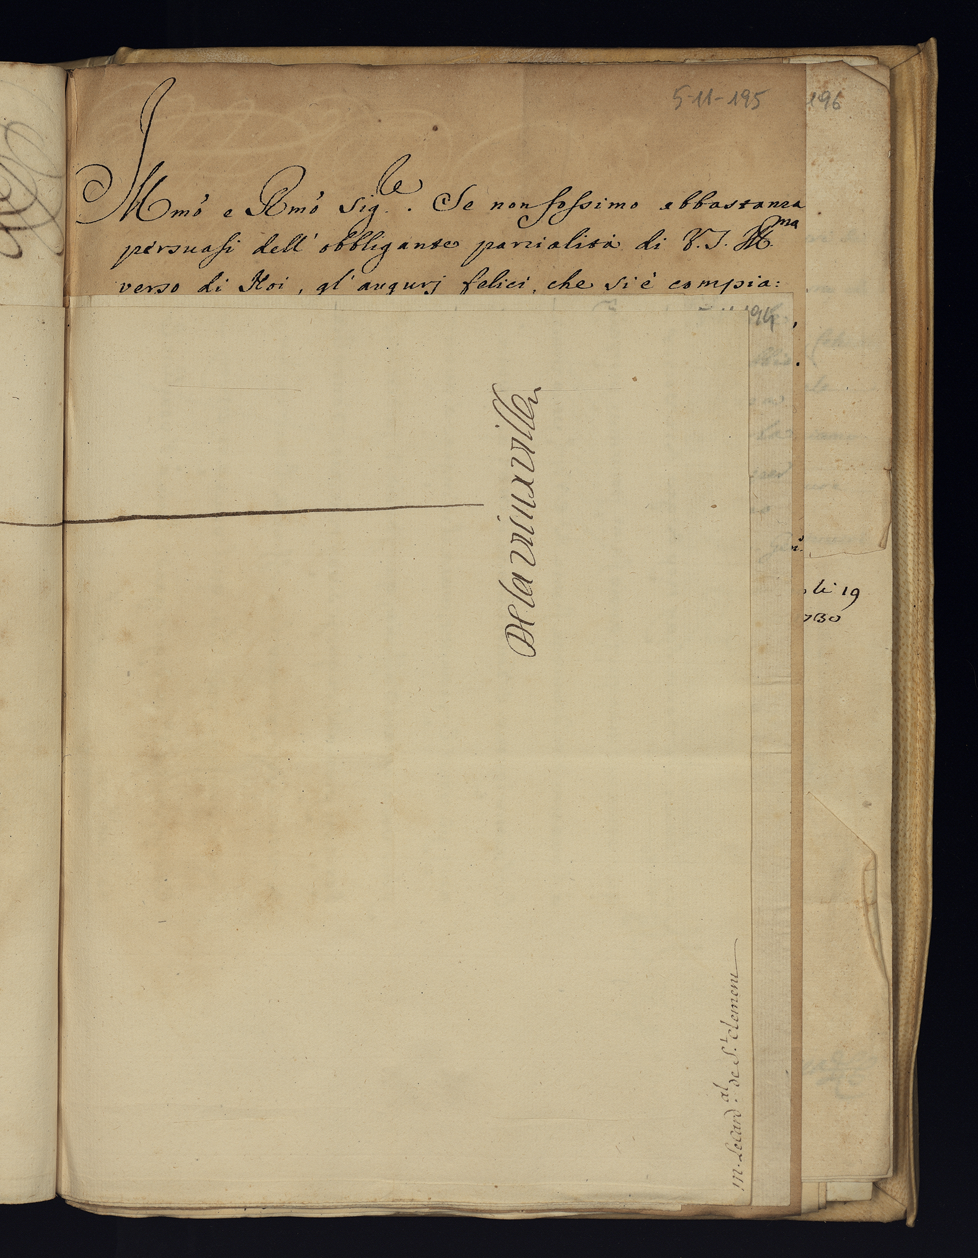 5-11-195
196
Illmõ e Rmõ Sig.re. Se non fossimo abbastanza
persuasi dell' obbligante parzialità di V.S. Illma
verso di Noi, gl' augurj felici, che si è compia:
194
Delavieuxville
li 19
1730
m. Lecard.al de St. clement